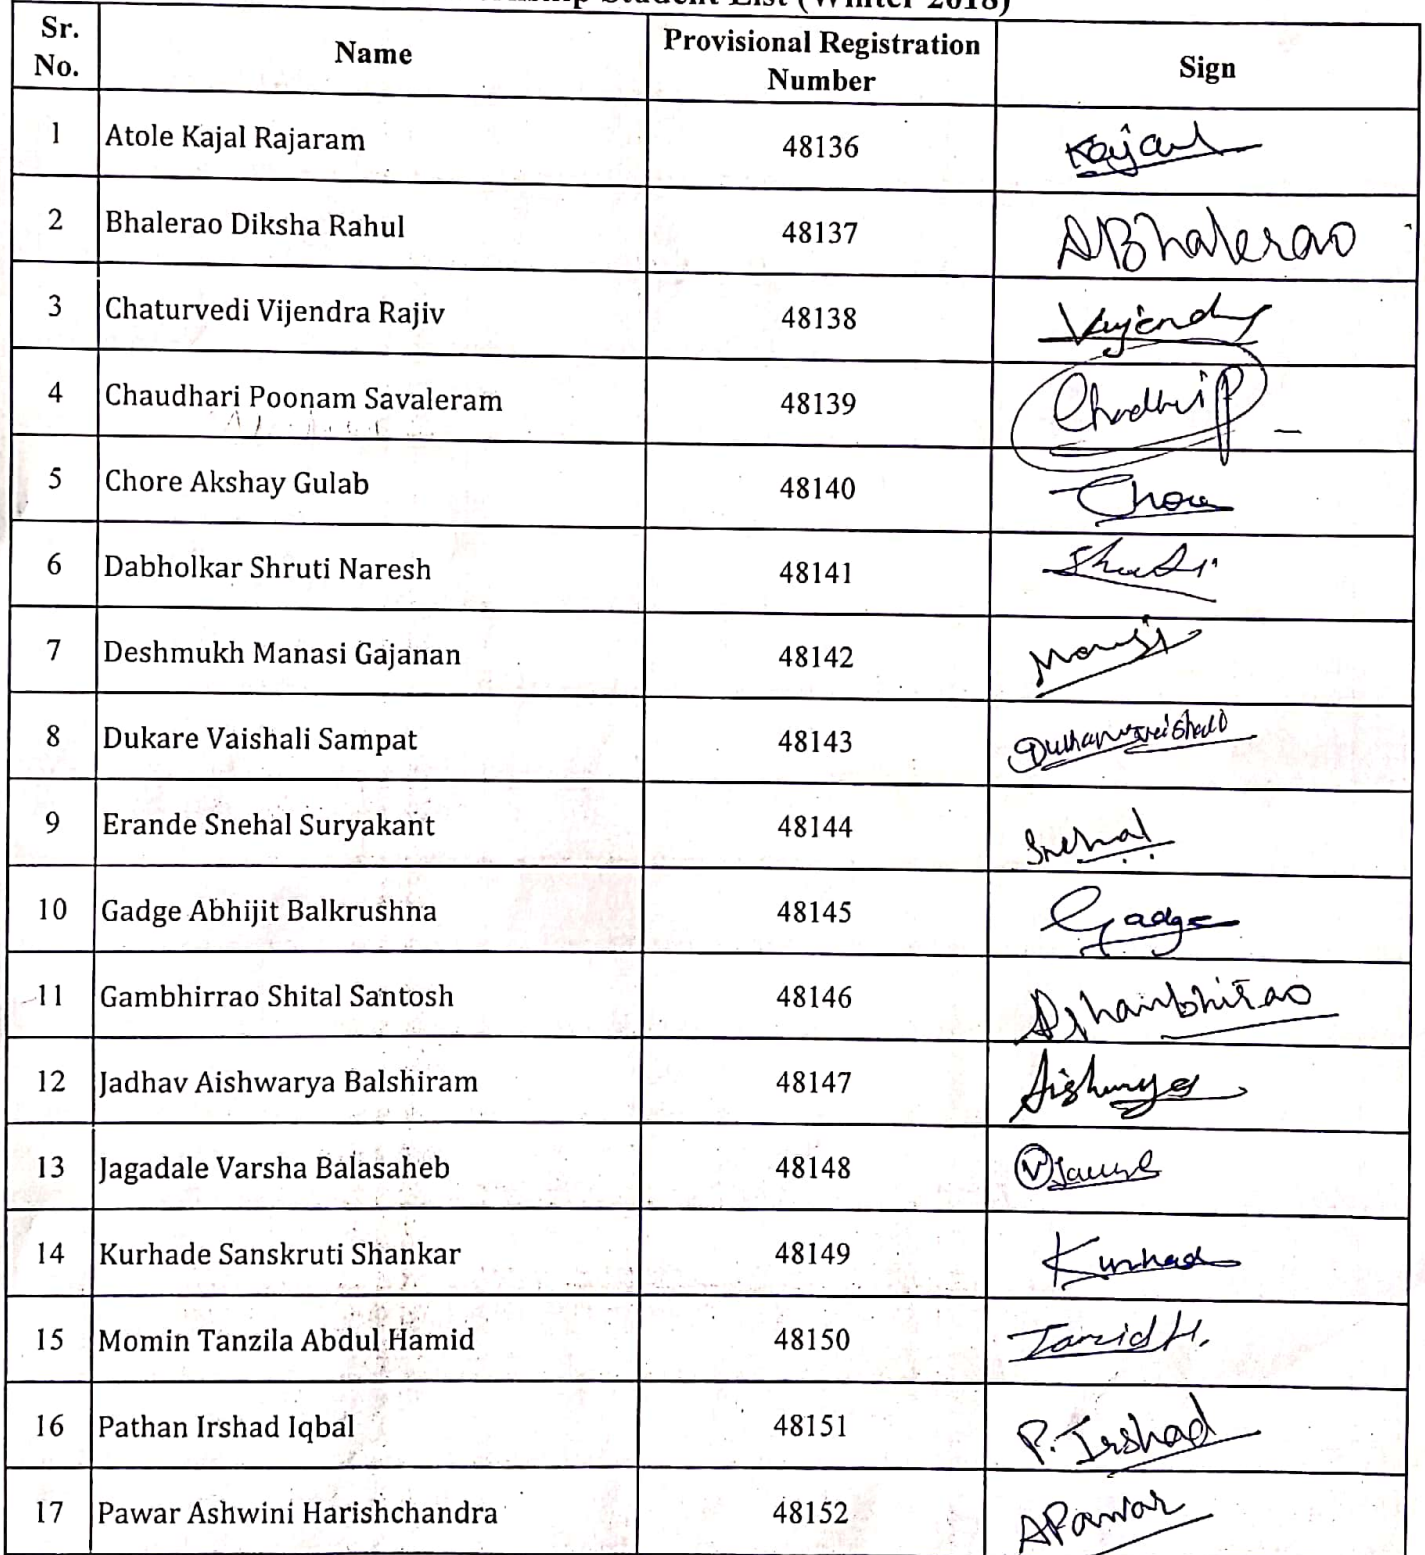 Student List (Winter 2018)
Sr. No. Name Provisional Registration Number Sign
1 Atole Kajal Rajaram 48136 Kajal
2 Bhalerao Diksha Rahul 48137 DBhalerao
3 Chaturvedi Vijendra Rajiv 48138
4 Chaudhari Poonam Savaleram 48139
5 Chore Akshay Gulab 48140 Chore
6 Dabholkar Shruti Naresh 48141
7 Deshmukh Manasi Gajanan 48142
8 Dukare Vaishali Sampat 48143
9 Erande Snehal Suryakant 48144 Snehal
10 Gadge Abhijit Balkrushna 48145 Gadge
11 Gambhirrao Shital Santosh 48146
12 Jadhav Aishwarya Balshiram 48147
13 Jagadale Varsha Balasaheb 48148
14 Kurhade Sanskruti Shankar 48149
15 Momin Tanzila Abdul Hamid 48150
16 Pathan Irshad Iqbal 48151 P. Irshad
17 Pawar Ashwini Harishchandra 48152 APawar